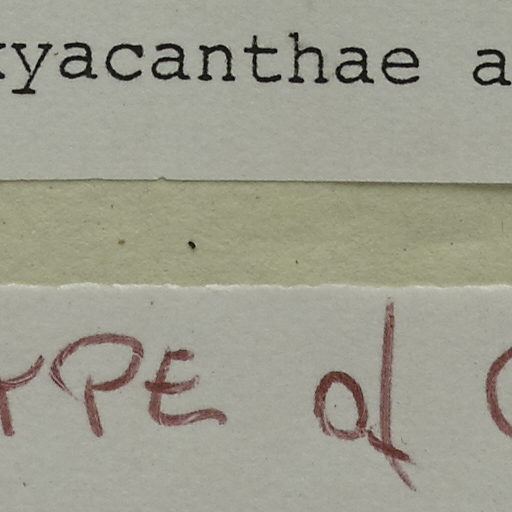 xyacanthae a
TYPE of